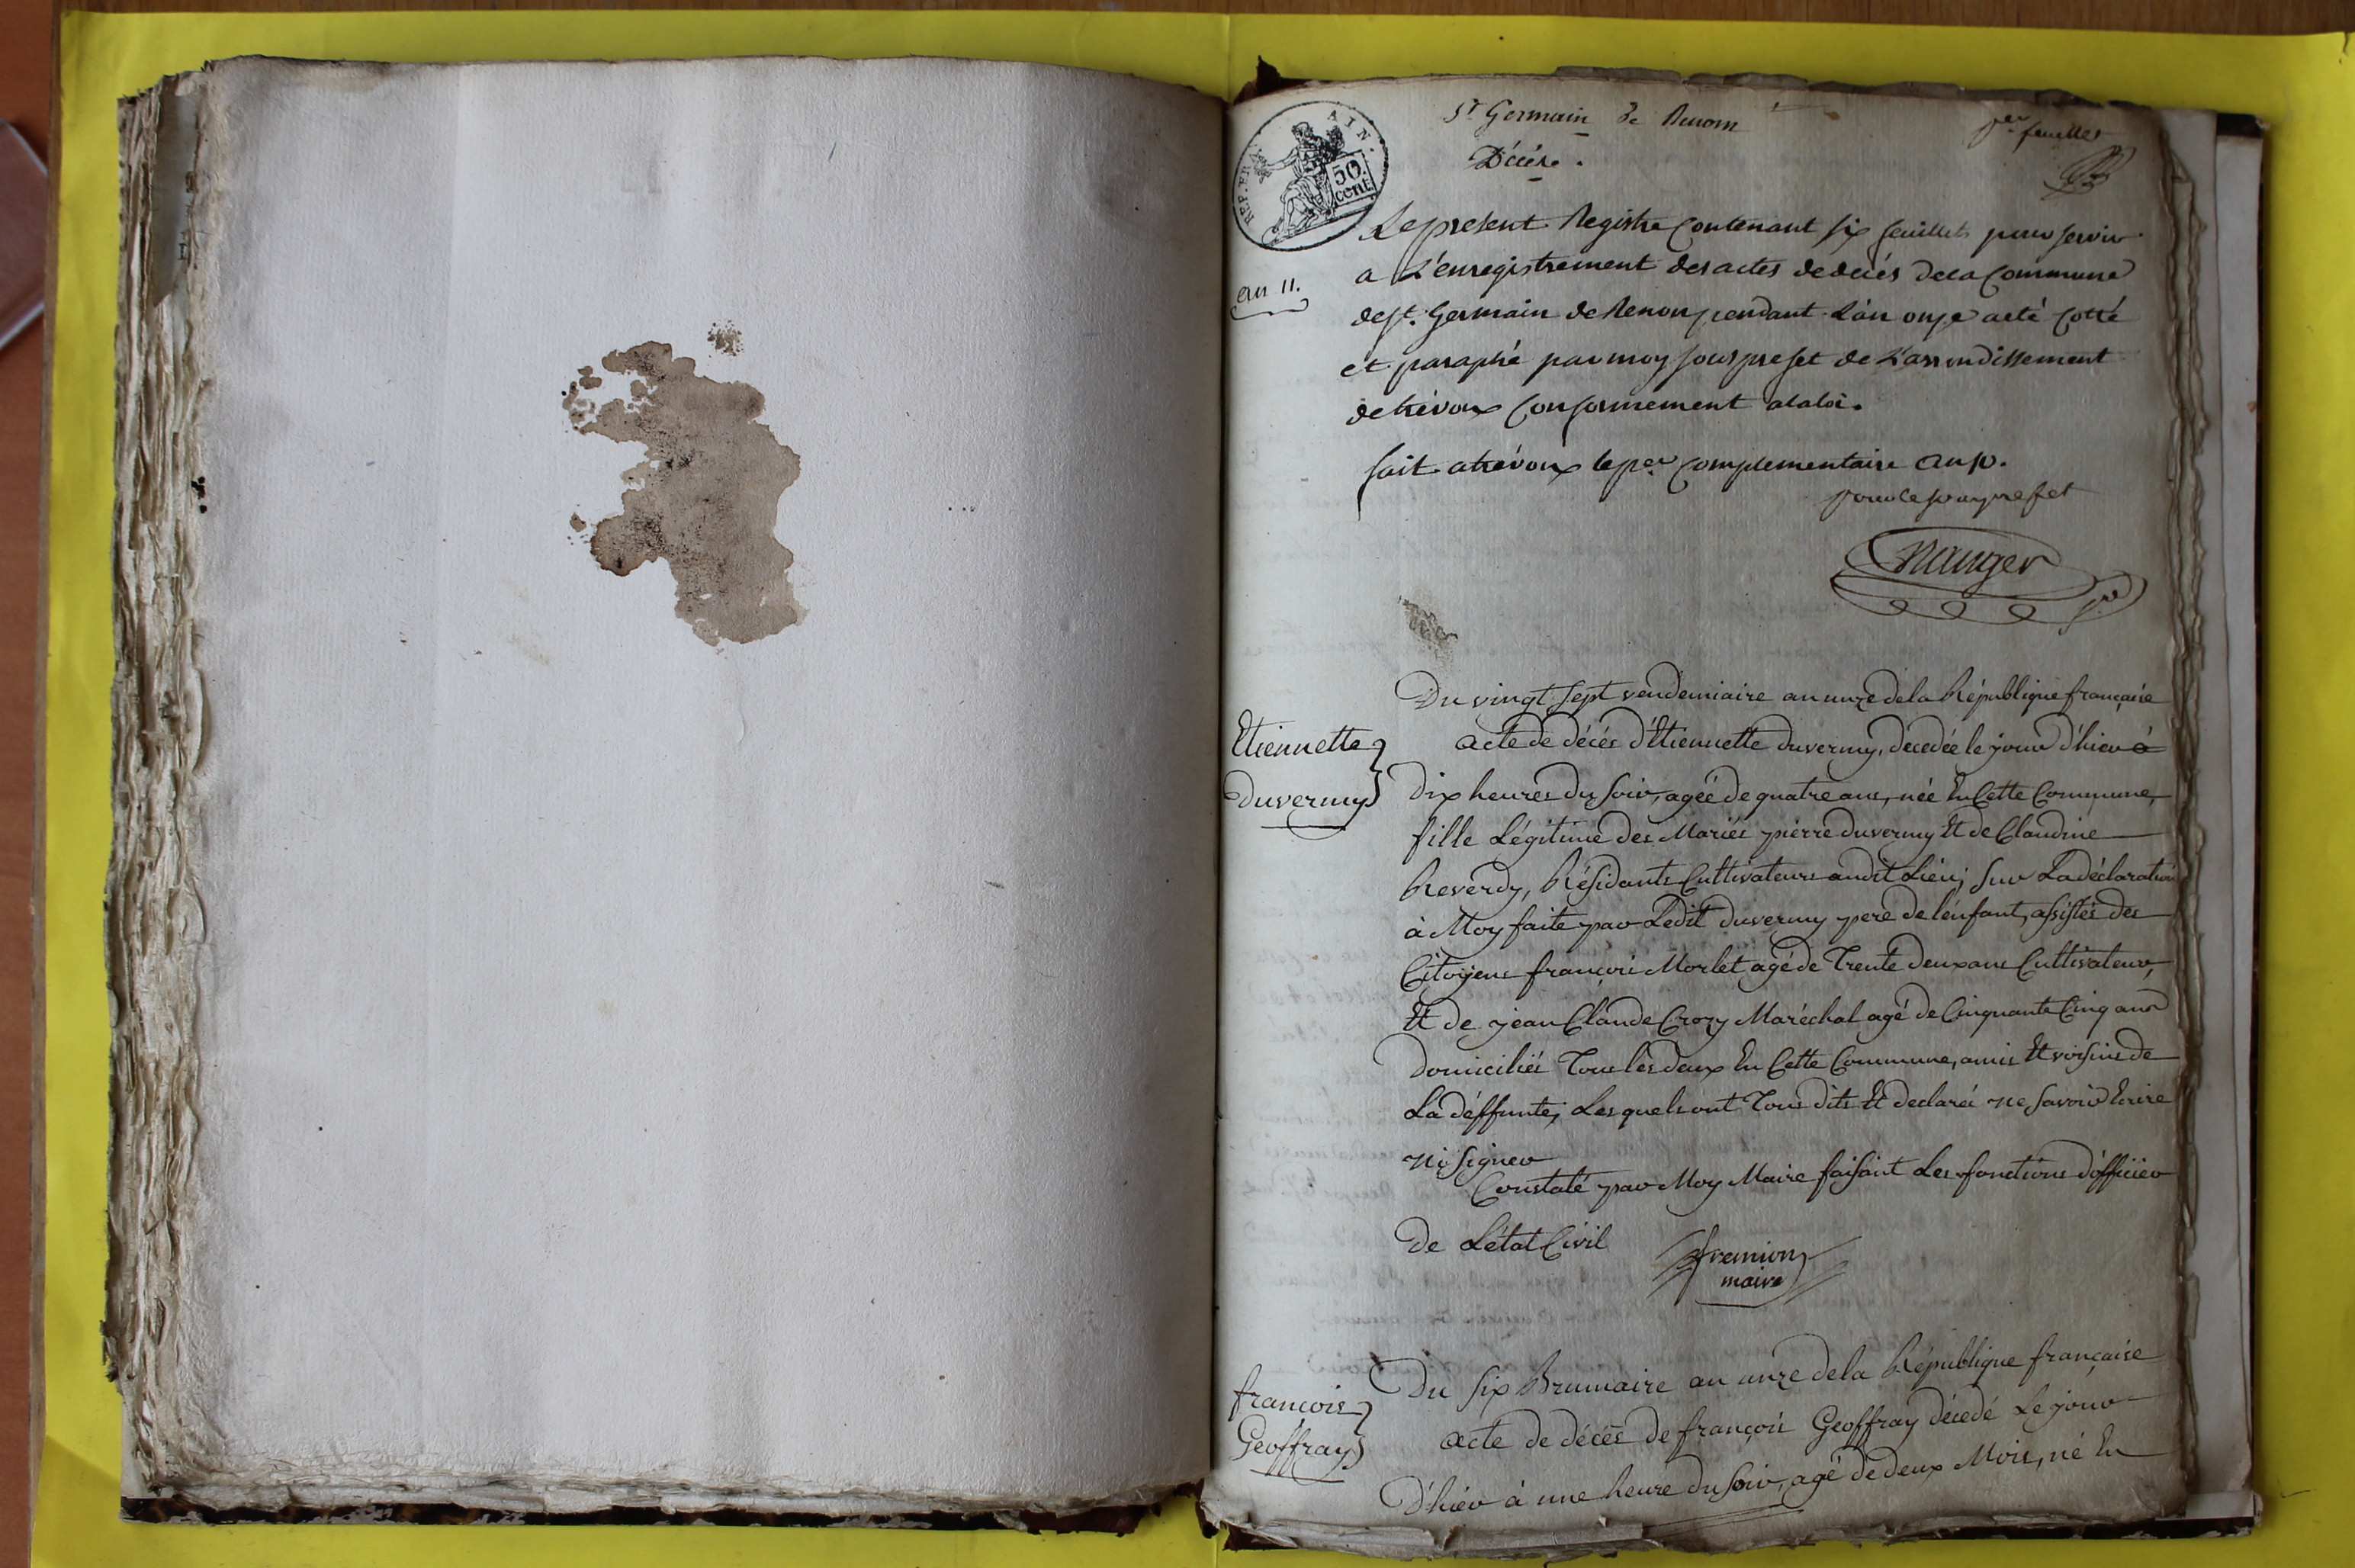 St Germain de Renom
per feuillet
Décés.
REP. FRA. AIN.
50.
cent.
an 11.
Le present Registre Contenant six feuillets pour servir
a L'enregistrement des actes de decés dela Commune
de st. Germain de Renon pendant L'an onze a été Cotté
et paraphé par moy sous prefet de L'arrondissement
de trévoux Conformement a la loi.
fait a trévoux le per Complementaire an 10.
pour le sous prefet
Du vingt Sept vendemiaire an unze dela République française
Etiennette
Duvermy
acte de décés d'Etiennette Duvermy, décedée le jour d'hier à
Dix heures du Soir, agée de quatre ans, née En Cette Commune,
fille Légitime des Mariés pierre Duvermy Et de Claudine
Reverdy, Résidants Cultivateurs audit Lieu; Sur La déclaration
à Moy faite par Ledit Duvermy pere de l'enfant, assistés des
Citoyens françois Morlet agé de Trente deux ans Cultivateur,
Et de jean Claude Crozy Maréchal agé de Cinquante Cinq ans
Domiciliés Tous les deux En Cette Commune, amis Et voisins de
La déffunte; Les quels ont Tous dits Et declaré ne Savoir Ecrire
ni Signer
Constaté par Moy Maire faisant Les fonctions d'officier
de L'état Civil
fremion
maire
Du Six Brumaire an unze dela République française
françois
Geoffray
acte de décès de françois Geoffray décedé Le jour
D'hier à une heure du Soir, agé de deux Mois, né En